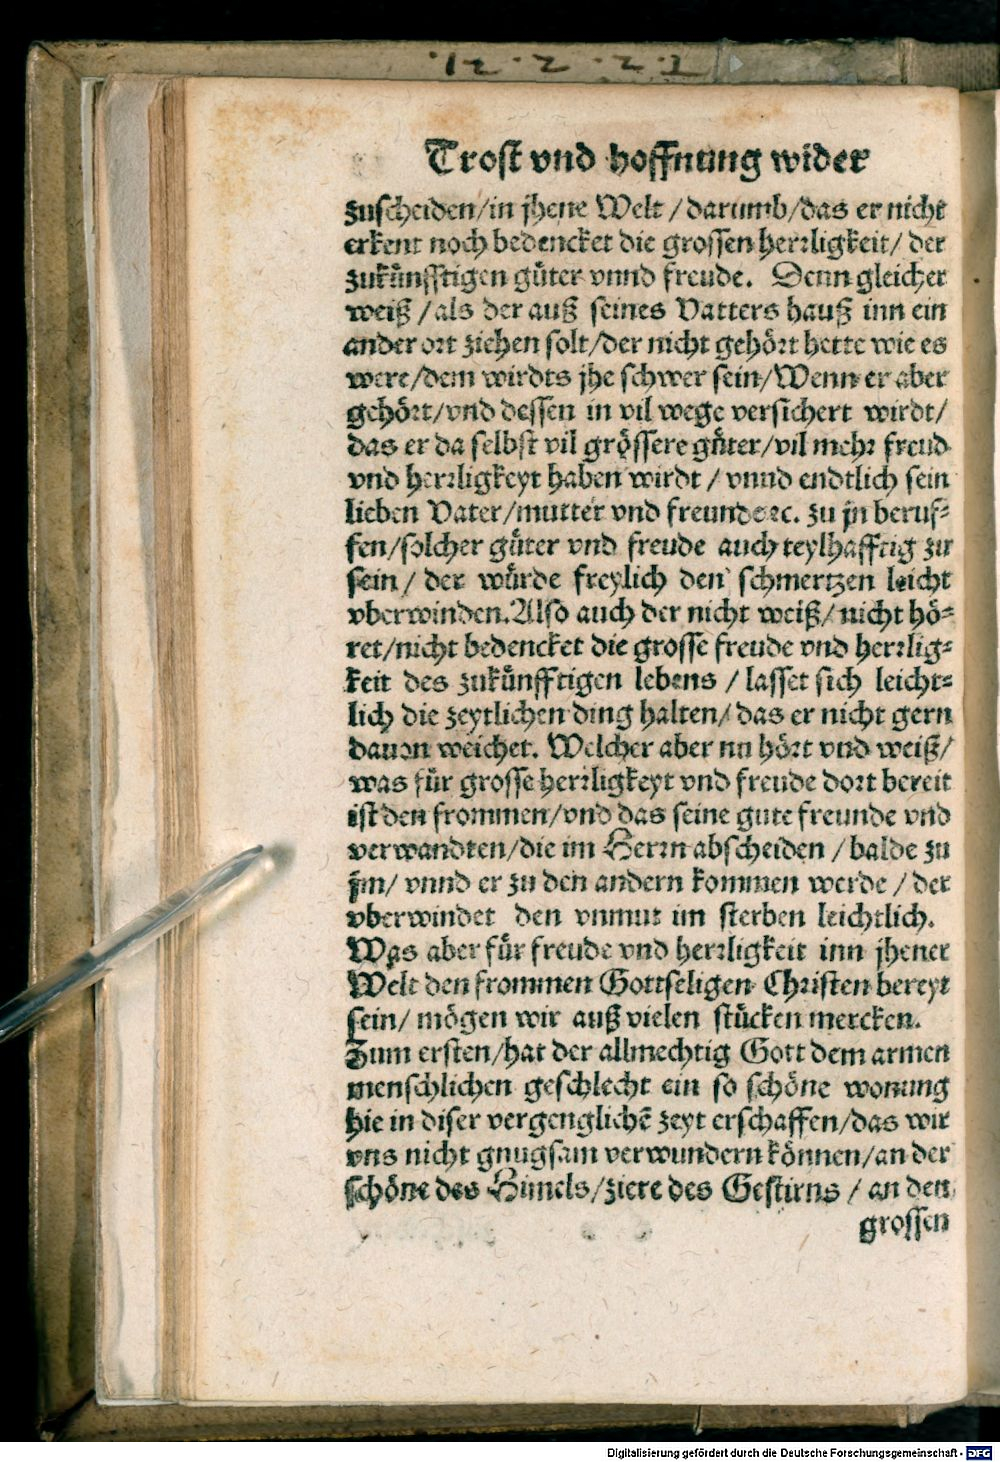 12.2.21
Trost vnd hoffnung wider
zuscheiden/in jhene Welt/darumb/das er nicht
erkent noch bedencket die grossen herrligkeit/ der
zukünfftigen güter vnnd freude. Denn gleicher
weiß/als der auß seines Vatters hauß inn ein
ander ort ziehen solt/der nicht gehört hette wie es
were/dem wirdts jhe schwer sein/Wenn er aber
gehört/vnd dessen in vil wege versichert wirdt/
das er da selbst vil grössere güter/vil mehr freud
vnd herrligkeyt haben wirdt/ vnnd endtlich sein
lieben Vater/mutter vnd freunde ꝛc. zu jm beruf⸗
fen/solcher güter vnd freude auch teylhafftig zu
sein/ der würde freylich den schmertzen leicht
vberwinden. Also auch der nicht weiß/ nicht hö⸗
ret/nicht bedencket die grosse freude vnd herrlig⸗
keit des zukünfftigen lebens / lasset sich leicht⸗
lich die zeytlichen ding halten/ das er nicht gern
dauon weichet. Welcher aber nu hört vnd weiß/
was für grosse herrligkeyt vnd freude dort bereit
ist den frommen/vnd das seine gute freunde vnd
verwandten/die im Herrn abscheiden / balde zu
jm/ vnnd er zu den andern kommen werde / der
vberwindet den vnmut im sterben leichtlich.
Was aber für freude vnd herrligkeit inn jhener
Welt den frommen Gottseligen Christen bereyt
sein/ mögen wir auß vielen stücken mercken.
Zum ersten/hat der allmechtig Gott dem armen
menschlichen geschlecht ein so schöne wonung
hie in diser vergenglichē zeyt erschaffen/das wir
vns nicht gnugsam verwundern können/an der
schöne des Himels/ziere des Gestirns / an den
grossen
Digitalisierung gefördert durch die Deutsche Forschungsgemeinschaft - DFG